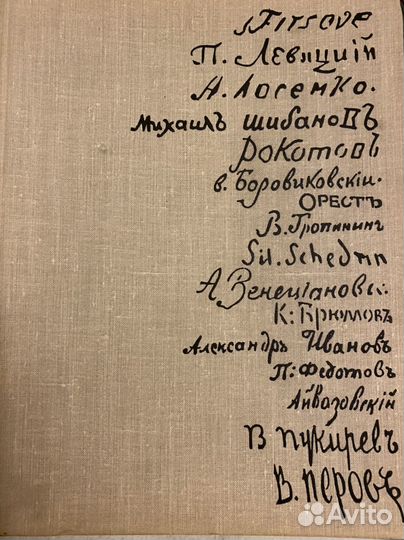 Firsove
П. Левицкій
А. Лосенко.
Михаилъ Шибановъ
Рокотовъ
в. Боровиковскiи.
ОРЕСТЪ
В. Тропининъ
Sil. Schedrin
А Венецiановъ.
К: Брюмовъ
Александръ Ивановъ
П: Федотовъ
Айвазовскій
В Пукиревъ
В. Перовъ
Avito